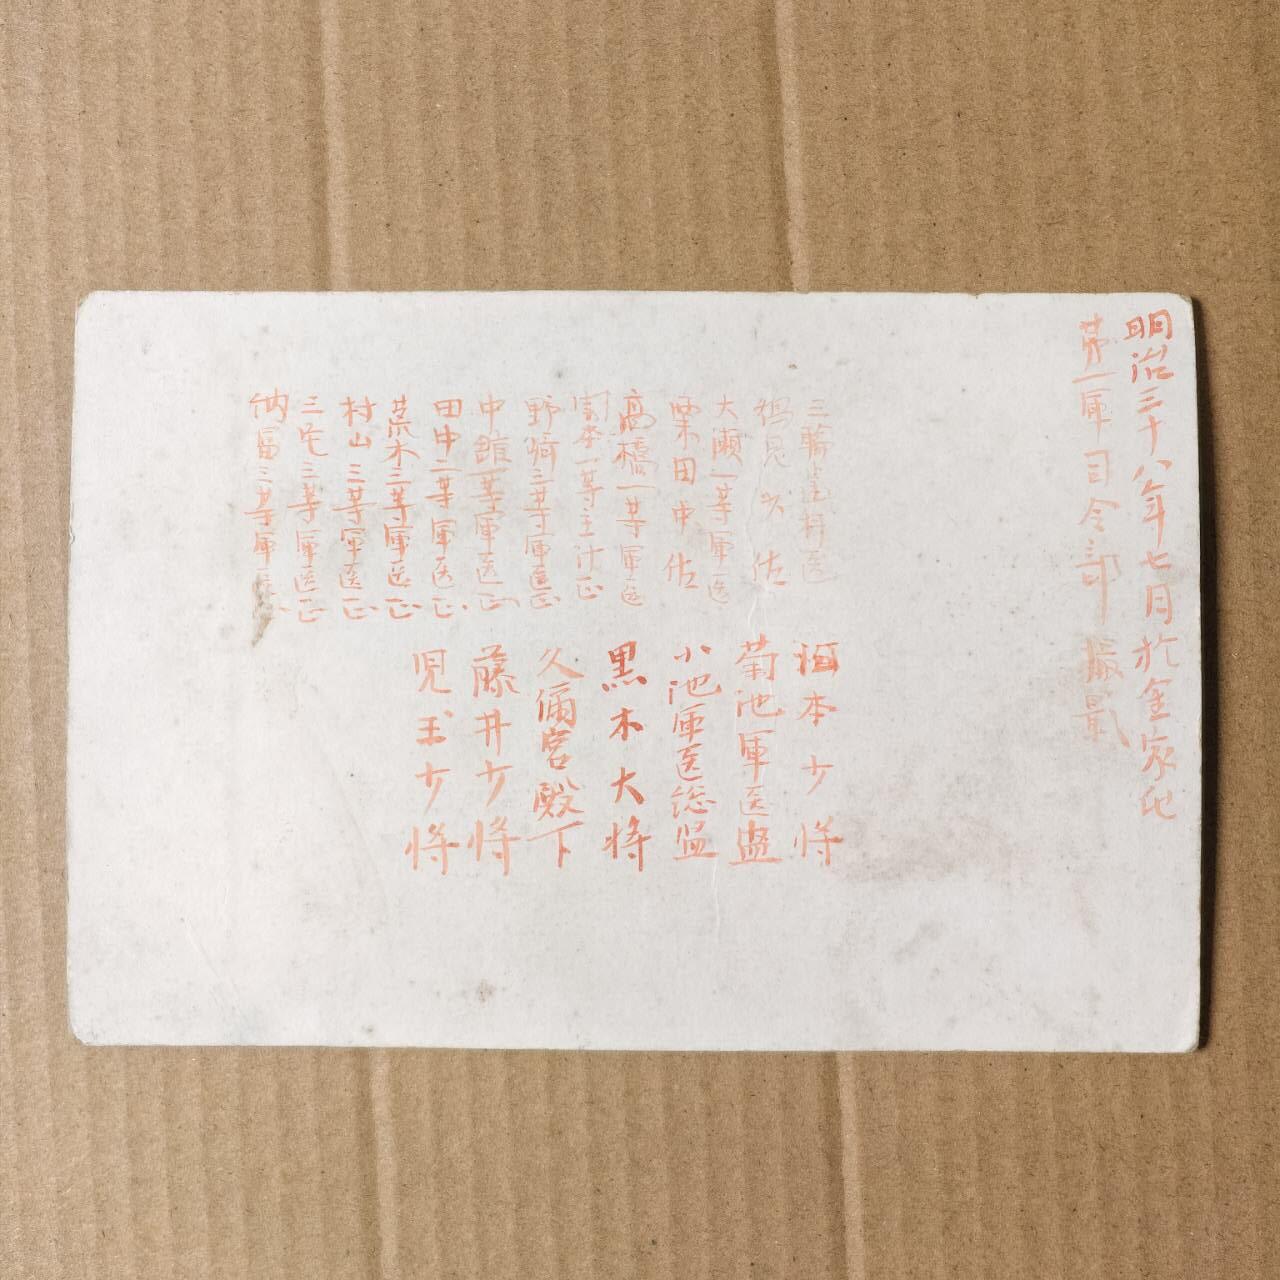 明治三十八年七月於金家屯
第一軍司令部撮影
三輪 医
少佐
大瀬一等軍医
栗田中佐
高橋一等軍医
一等主計正
野崎三等軍医正
中舘一等軍医正
田中二等軍医正
荒木二等軍医正
村山三等軍医正
三宅三等軍医正
納富三等軍医正
河本少将
菊池軍医監
小池軍医総監
黒木大将
久邇宮殿下
藤井少将
児玉少将